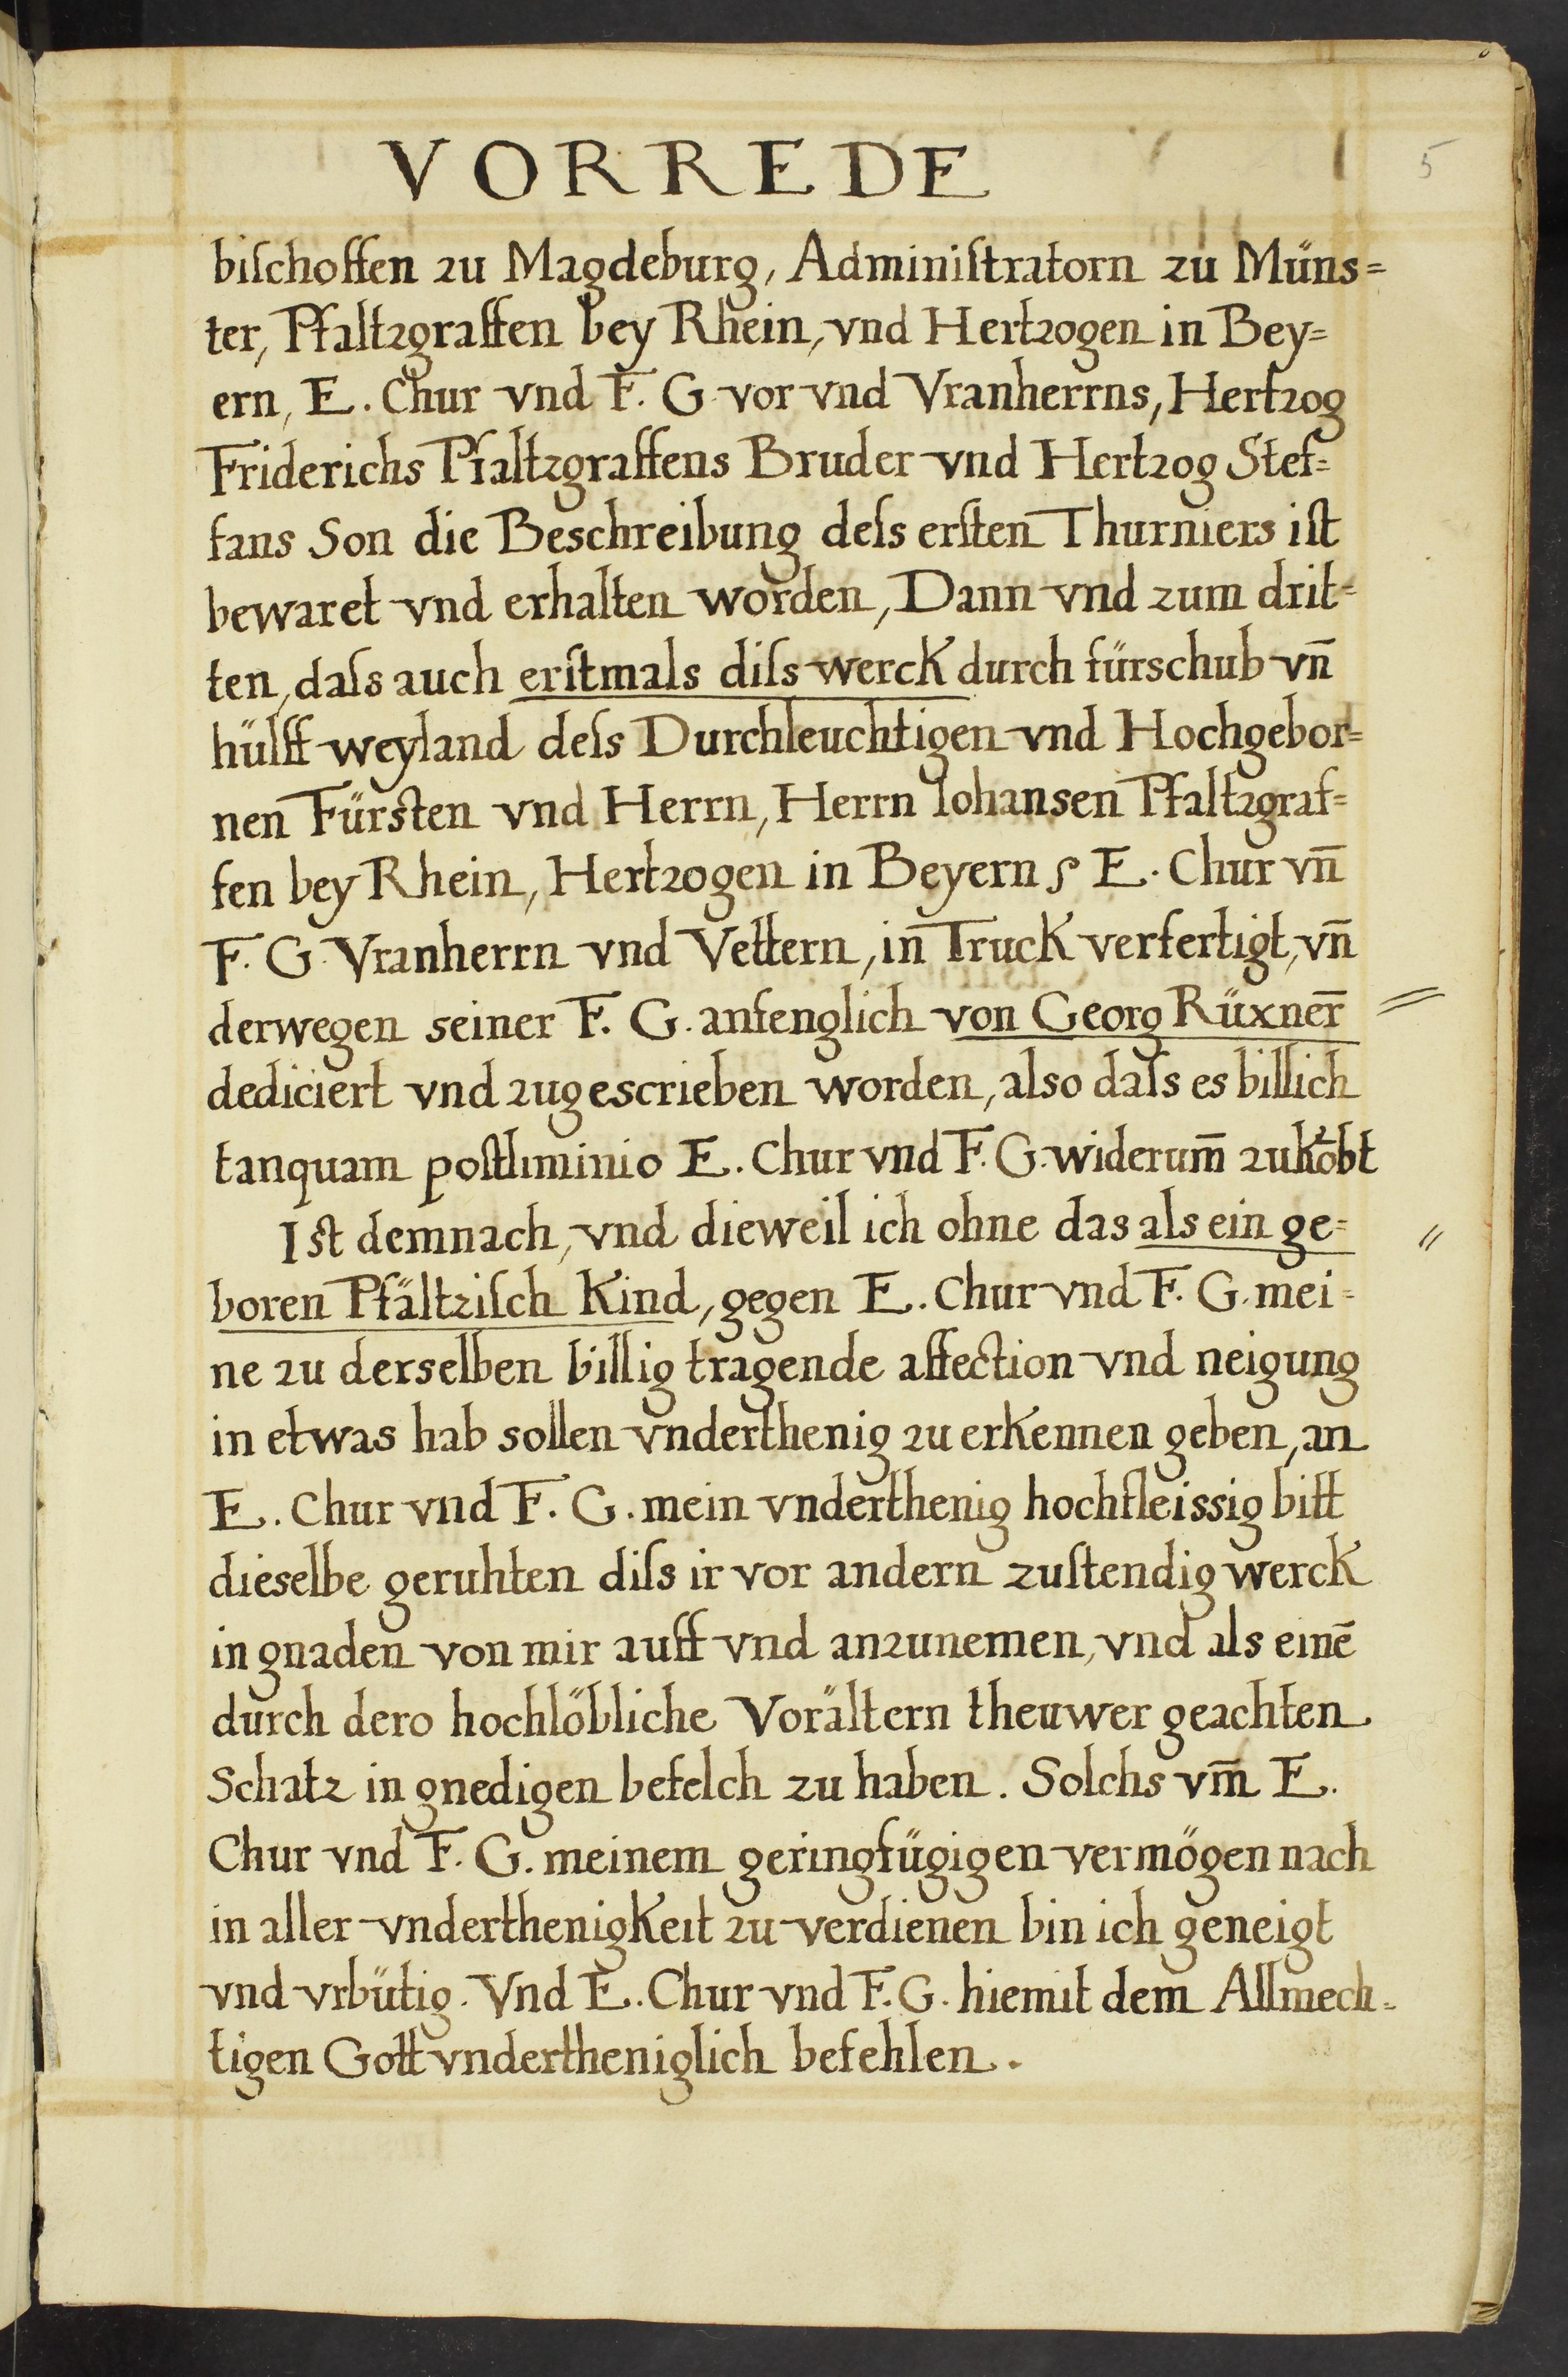 VORREDE
5
biſchoffen zu Magdeburg, Adminiſtratorn zu Müns=
ter, Pfaltzgraffen bey Rhein, vnd Hertzogen in Bey=
ern, E. Chur vnd F. G. vor vnd Vranherrns, Hertzog
Friderichs Pfaltzgraffens Bruder vnd Hertzog Stef=
fans Son die Beschreibung deſs erſten Thurniers iſt
bewaret vnd erhalten worden, Dann vnd zum drit=
ten, daſs auch erſtmals diſs werck durch fürschub vn̄
hülff weyland deſs Durchleuchtigen vnd Hochgebor=
nen Fürſten vnd Herrn, Herrn Iohansen Pfaltzgraf=
fen bey Rhein, Hertzogen in Beyern E. Chur vn̄
F. G. Vranherrn vnd Vettern, in Truck verfertigt, vn̄
derwegen seiner F. G. anfenglich von Georg Rüxner̄ =
dediciert vnd zugescrieben worden, also daſs es billich
tanquam poſtliminio E. Chur vnd F. G. widerum̄ zukōbt
Iſt demnach, vnd dieweil ich ohne das als ein ge= "
boren Pfältziſch Kind, gegen E. Chur vnd F. G. mei=
ne zu derselben billig tragende affection vnd neigung
in etwas hab sollen vnderthenig zu erkennen geben, an
E. Chur vnd F. G. mein vnderthenig hochfleissig bitt
dieselbe geruhten diſs ir vor andern zuſtendig werck
in gnaden von mir auff vnd anzunemen, vnd als einē
durch dero hochlöbliche Vorältern theuwer geachten
Schatz in gnedigen befelch zu haben. Solchs vm̄ E.
Chur vnd F. G. meinem geringfügigen vermögen nach
in aller vnderthenigkeit zu verdienen bin ich geneigt
vnd vrbütig. Vnd E. Chur vnd F. G. hiemit dem Allmech=
tigen Gott vndertheniglich befehlen.